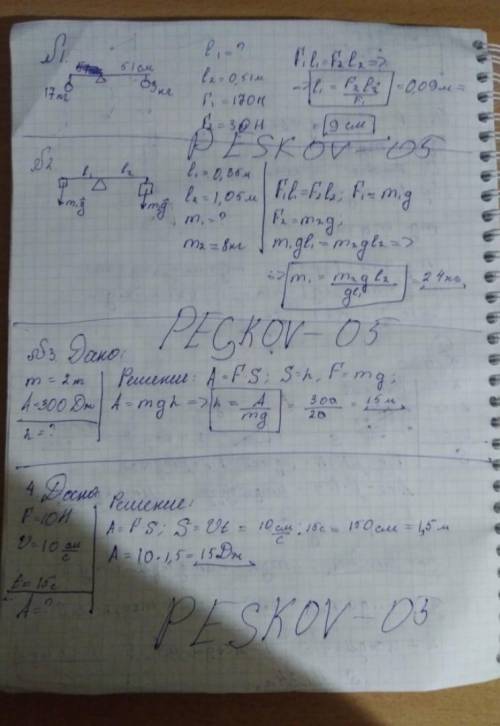 №1.
51 см
17 кг 3 кг
l₁ = ?
l₂ = 0,51 м
F₁ = 170 Н
F₂ = 30 Н
F₁l₁ = F₂l₂ =>
=> l₁ = F₂l₂/F₁ = 0,09 м =
= 9 см
PESKOV-05
№2
l₁ l₂
m₁g m₂g
l₁ = 0,35 м
l₂ = 1,05 м
m₁ = ?
m₂ = 8 кг
F₁l₁ = F₂l₂; F₁ = m₁g
F₂ = m₂g;
m₁gl₁ = m₂gl₂ =>
=> m₁ = m₂gl₂/gl₁ = 24 кг
PESKOV-05
№3 Дано:
m = 2 т
A = 300 Дж
h = ?
Решение: A = FS; S = h, F = mg;
A = mgh => h = A/mg = 300/20 = 15 м
4. Дано:
F = 10 Н
v = 10 см/с
t = 15 с
A = ?
Решение:
A = FS; S = Vt = 10 см/с · 15 с = 150 см = 1,5 м
A = 10 · 1,5 = 15 Дж
PESKOV-05